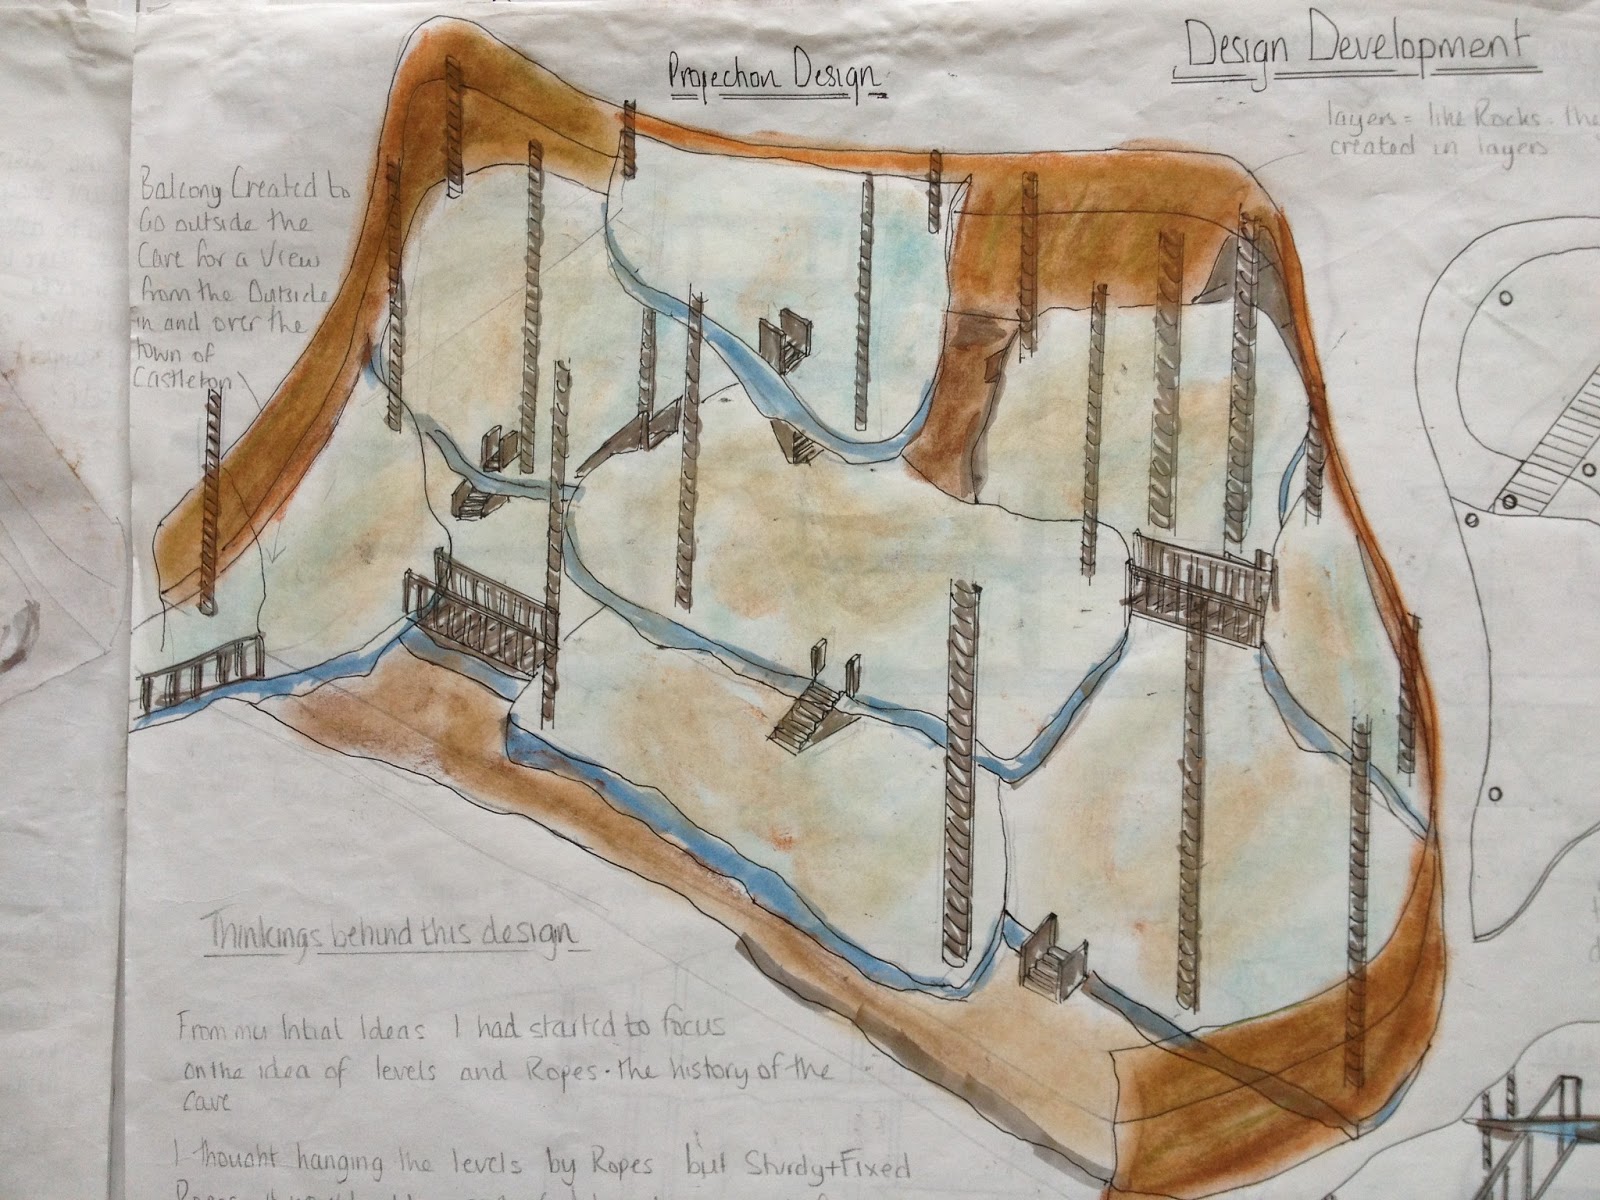 Design Development
Projection Design
layers = like Rocks. the
created in layers
Balcony Created to
Go outside the
Cave for a View
from the Outside
in and over the
town of
Castleton
Thinkings behind this design
From my Intial Ideas I had started to focus
on the idea of levels and Ropes. the history of the
cave
I thought hanging the levels by Ropes but Sturdy+Fixed